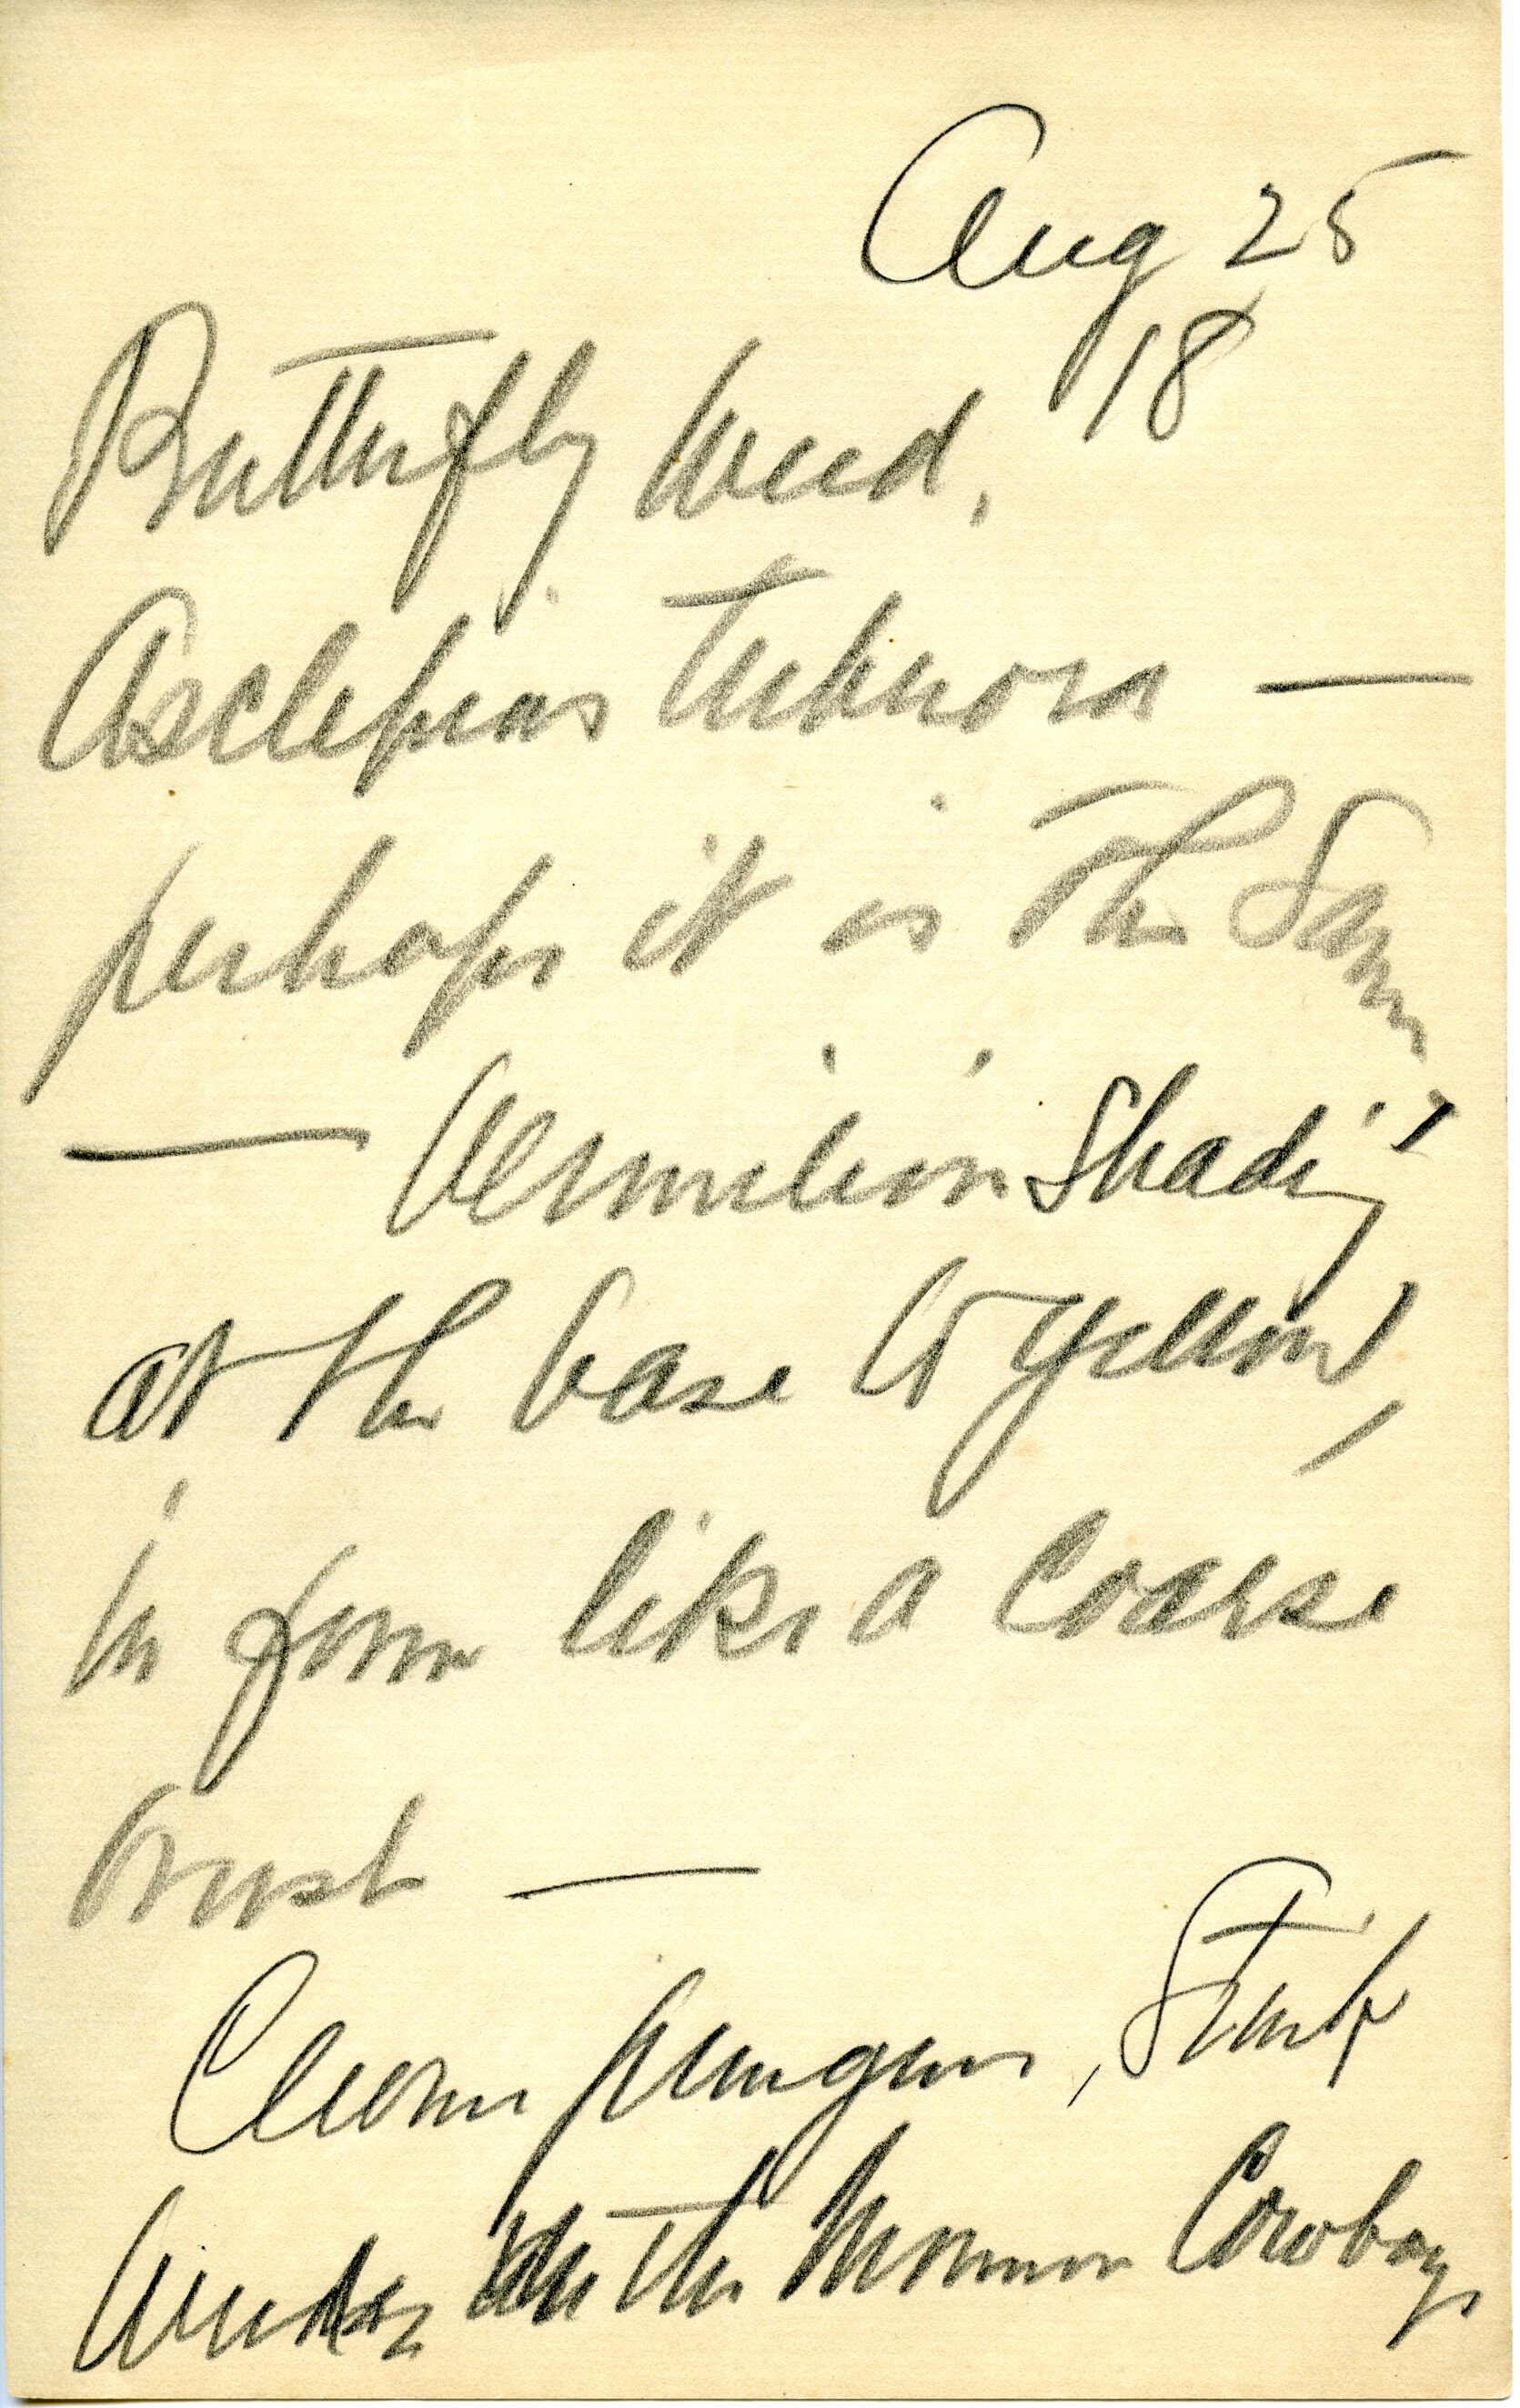 Aug 25
18
Butterfly Weed,
Asclepias Tuberosa —
perhaps it is the Same
— Vermilion Shading
at the base to yellow,
in form like a Coarse
brush —
Cleome pungens,
the Mormon Cowboys